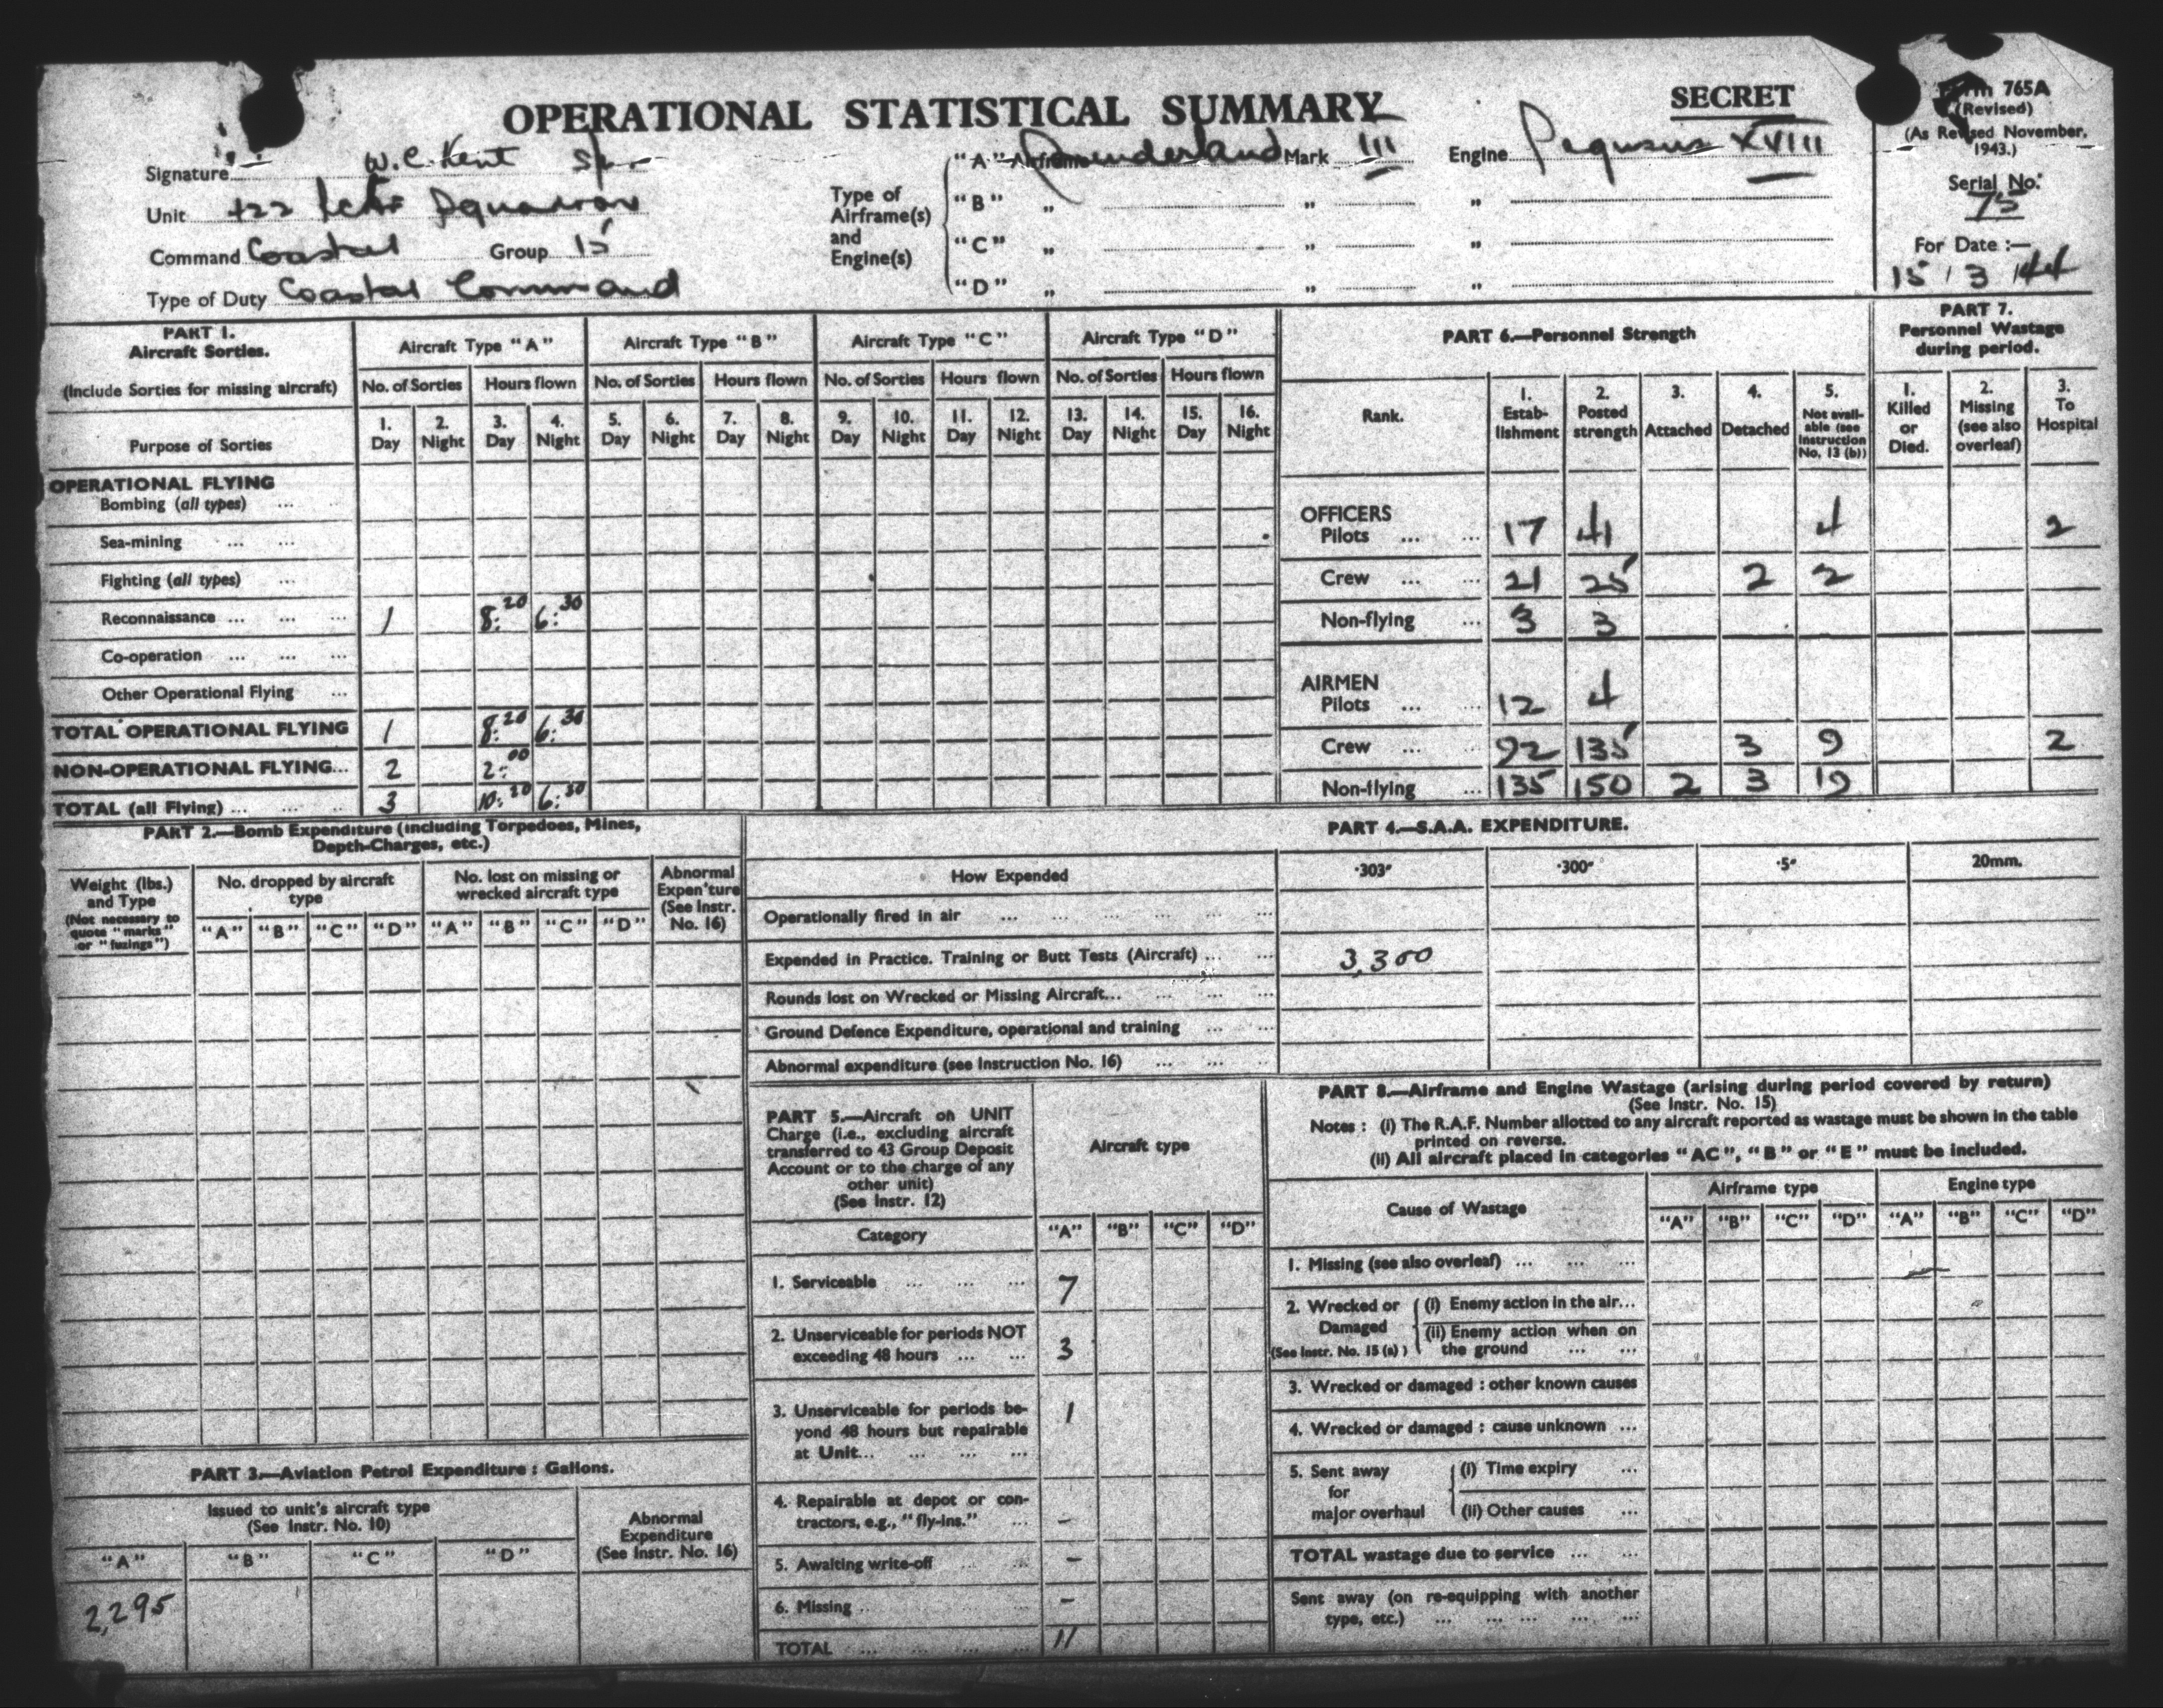 OPERATIONAL STATISTICAL SUMMARY
SECRET
Form 765A
(Revised)
(As Revised November, 1943.)
Serial No.
75
For Date :—
15 / 3 / 44
Signature W. C. Kent
Unit 422 Squadron
Command Coastal Group 15
Type of Duty Coastal Command
Type of Airframe(s) and Engine(s)
"A" Airframe Sunderland Mark III Engine Pegusus XVIII
"B" " " "
"C" " " "
"D" " " "
PART 1.
Aircraft Sorties.
(Include Sorties for missing aircraft)
Purpose of Sorties
Aircraft Type "A" Aircraft Type "B" Aircraft Type "C" Aircraft Type "D"
No. of Sorties Hours flown No. of Sorties Hours flown No. of Sorties Hours flown No. of Sorties Hours flown
1. Day 2. Night 3. Day 4. Night 5. Day 6. Night 7. Day 8. Night 9. Day 10. Night 11. Day 12. Night 13. Day 14. Night 15. Day 16. Night
OPERATIONAL FLYING
Bombing (all types) ...
Sea-mining ... ...
Fighting (all types) ...
Reconnaissance ... ... ... 1 8:20 6:30
Co-operation ... ... ...
Other Operational Flying ...
TOTAL OPERATIONAL FLYING 1 8:20 6:30
NON-OPERATIONAL FLYING... 2 2:00
TOTAL (all Flying) ... ... ... 3 10:20 6:30
PART 6.—Personnel Strength
Rank.
1. Estab-lishment 2. Posted strength 3. Attached 4. Detached 5. Not avail-able (see Instruction No. 13 (b))
PART 7.
Personnel Wastage during period.
1. Killed or Died. 2. Missing (see also overleaf) 3. To Hospital
OFFICERS
Pilots ... ... 17 41 4 2
Crew ... ... 21 25 2 2
Non-flying ... 3 3
AIRMEN
Pilots ... ... 12 4
Crew ... ... 92 135 3 9 2
Non-flying ... 135 150 2 3 19
PART 2.—Bomb Expenditure (including Torpedoes, Mines, Depth-Charges, etc.)
Weight (lbs.) and Type
(Not necessary to quote "marks" or "fuzings")
No. dropped by aircraft type
No. lost on missing or wrecked aircraft type
Abnormal Expen'ture (See Instr. No. 16)
"A" "B" "C" "D" "A" "B" "C" "D"
PART 3.—Aviation Petrol Expenditure : Gallons.
Issued to unit's aircraft type
(See Instr. No. 10)
Abnormal Expenditure
(See Instr. No. 16)
"A" "B" "C" "D"
2,295
PART 4.—S.A.A. EXPENDITURE.
How Expended ·303" ·300" ·5" 20mm.
Operationally fired in air ... ... ... ... ... ...
Expended in Practice. Training or Butt Tests (Aircraft) ... ... 3,300
Rounds lost on Wrecked or Missing Aircraft... ... ... ...
Ground Defence Expenditure, operational and training ... ...
Abnormal expenditure (see Instruction No. 16) ... ... ...
PART 5.—Aircraft on UNIT
Charge (i.e., excluding aircraft
transferred to 43 Group Deposit
Account or to the charge of any
other unit)
(See Instr. 12)
Aircraft type
Category "A" "B" "C" "D"
1. Serviceable ... ... ... 7
2. Unserviceable for periods NOT
exceeding 48 hours ... ... 3
3. Unserviceable for periods be-
yond 48 hours but repairable
at Unit... ... ... ... 1
4. Repairable at depot or con-
tractors, e.g., "fly-ins." ... –
5. Awaiting write-off ... ... –
6. Missing ... ... –
TOTAL ... ... ... ... 11
PART 8.—Airframe and Engine Wastage (arising during period covered by return)
(See Instr. No. 15)
Notes : (i) The R.A.F. Number allotted to any aircraft reported as wastage must be shown in the table
printed on reverse.
(ii) All aircraft placed in categories "AC", "B" or "E" must be included.
Cause of Wastage Airframe type Engine type
"A" "B" "C" "D" "A" "B" "C" "D"
1. Missing (see also overleaf) ... ... ...
2. Wrecked or Damaged
(See Instr. No. 15 (a))
(i) Enemy action in the air...
(ii) Enemy action when on
the ground ... ...
3. Wrecked or damaged : other known causes
4. Wrecked or damaged : cause unknown ...
5. Sent away
for
major overhaul
(i) Time expiry ...
(ii) Other causes ...
TOTAL wastage due to service ... ...
Sent away (on re-equipping with another
type, etc.) ... ... ... ... ...